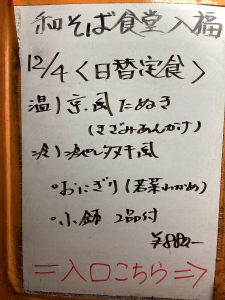 和そば食堂 入福
12/4〈日替定食〉
温)京風たぬき
(きざみあんかけ)
冷)冷やしタヌキ風
・おにぎり(若菜わかめ)
・小鉢 2品付
¥880-
=入口こちら⇒